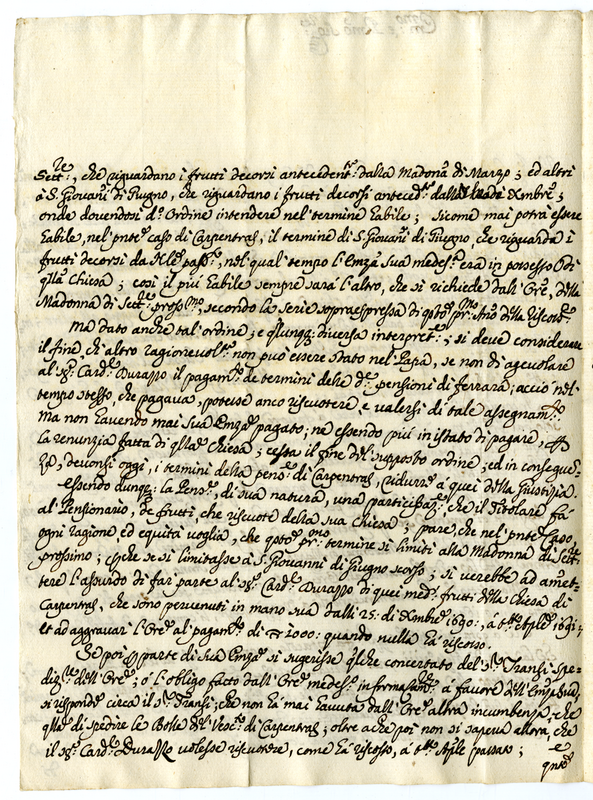 Sett.re, che riguardano i frutti decorsi antecedent.te dalla Madona di Marzo; ed altri
à S. Giovani di Giugno, che riguardano i frutti decorsi anteced.te dalla Xmbre;
onde dovendosi d.o Ordine intendere nel termine habile; sicome mai potrà essere
habile, nel pnte caso di Carpentras, il termine di S. Giovani di Giugno, che riguarda i
frutti decorsi da nel qual tempo l'Emza Sua medes.a era in possesso di
qlla Chiesa; così il più habile sempre sarà l'altro, che si richiede dall'Ore, della
Madonna di Sett.re pross.mo, secondo la serie sopraespressa di qsto pr.mo Año della Riscoss.e
Ma dato anche tal'ordine, e qlunq. diversa interpret.e; si deve considerare
il fine, ch'altro ragionevol.te non può essere stato nel Papa, se non di agevolare
al sig.r Card. Durazzo il pagam.to de termini delle d.e pensioni di ferrara; acciò nel
tempo stesso, che pagava, potesse anco riscuotere, e valersi di tale assegnam.to
Ma non havendo mai Sua Emza pagato; nè essendo più in istato di pagare,
la renunzia fatta di qlla Chiesa; cessa il fine del supposto ordine; ed in consegue
za, devonsi oggi, i termini della pens.e di Carpentras, ridurre à quei della Giustizia.
essendo dunq. la Pens.e, di sua natura, una participaz.e, che il Titolare fà
al Pensionario, de frutti, che riscuote della sua Chiesa; pare, che nel pnte Caso
ogni ragione ed equità voglia, che qsto pr.mo termine si limiti alla Madonna di Sett.re
prossimo; che se si limitasse à S. Giovanni di Giugno scorso; si verebbe ad amet-
tere l'assurdo di far parte al sig.r Card. Durazzo di quei med.i frutti della Chiesa di
Carpentras, che sono pervenuti in mano sua dalli 25. di Xmbre 1690., à Aple 1691.;
et ad aggravar l'Ore al pagam.to di 2000: quando nulla hà riscosso.
Se poi parte di Sua Emza si sugerisse qlche concertato del s.r Transi spe-
diz.re dell'Ore; ò l'obligo fatto dall'Ore medes.o à favore dell'Emza Sua,
si risponde circa il s.r Transi; che non hà mai havuta dall'Ore altra incumbenza, che
qlla di spedire le Bolle del Vesc.to di Carpentras; oltre ache poi non si sapeva allora, che
il sig.r Card. Durazzo volesse riscuotere, come hà riscosso, à Aple passato; e
qnto